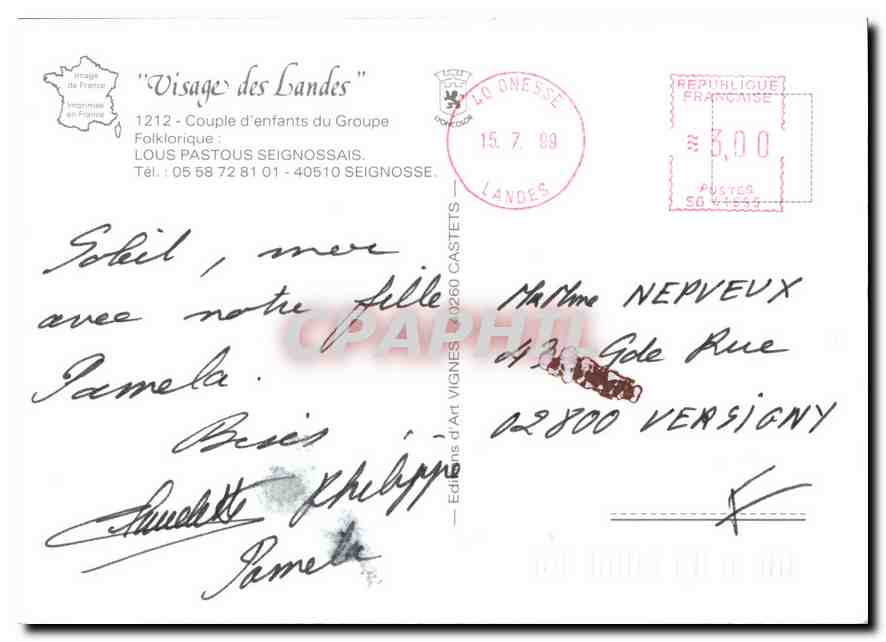 Image
de France
Imprimée
en France
"Visage des Landes"
1212 - Couple d'enfants du Groupe
Folklorique :
LOUS PASTOUS SEIGNOSSAIS.
Tél. : 05 58 72 81 01 - 40510 SEIGNOSSE.
LYONCOLOR
40 ONESSE
15. 7. 99
LANDES
REPUBLIQUE
FRANCAISE
3,00
POSTES
SG 41695
Editions d'Art VIGNES - 40260 CASTETS
Soleil, mer
avec notre fille
Pamela.
Bises
Claudette Philippe
Pamela
M Mme NERVEUX
43 Gde Rue
02800 VERSIGNY
CPAPHIL